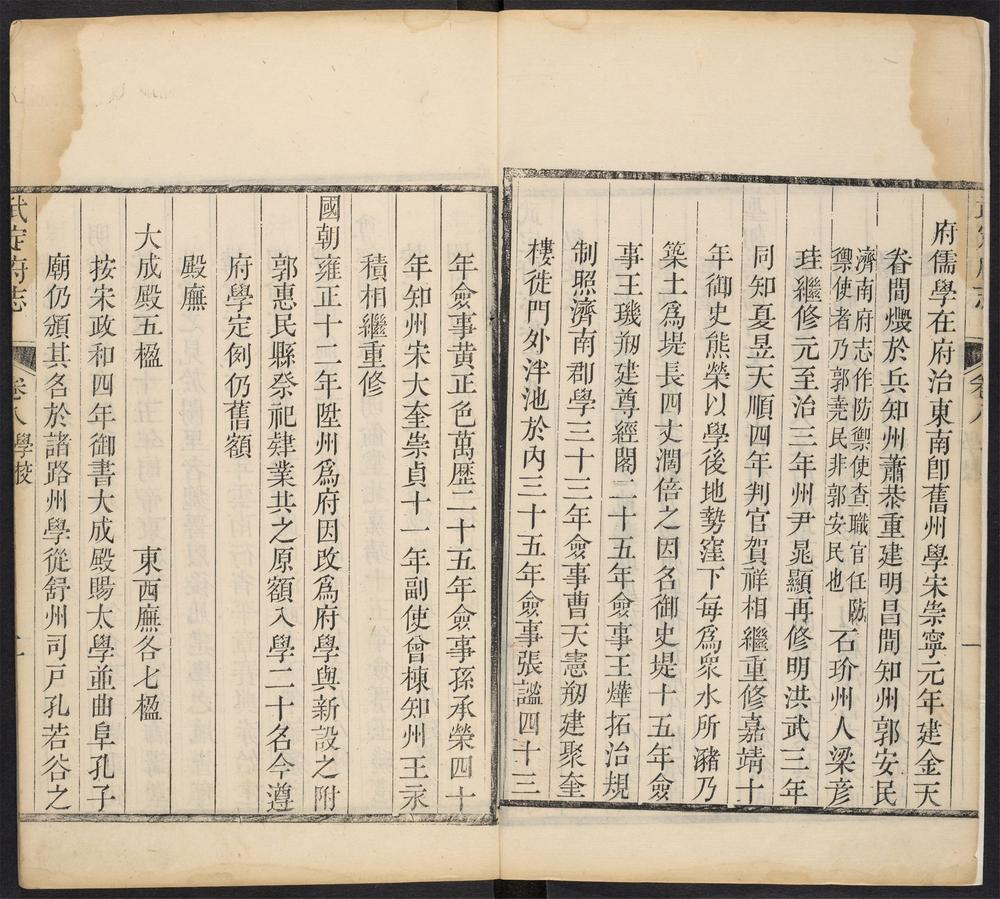 府儒學在府治東南卽舊州學宋崇寧元年建金天
眷間燬於兵知州蕭恭重建明昌間知州郭安民
濟南府志作防禦使查職官任防
禦使者乃郭堯民非郭安民也
石玠州人梁彦
珪繼修元至治三年州尹晁顯再修明洪武三年
同知夏昱天順四年判官賀祥相繼重修嘉靖十
年御史熊榮以學後地勢窪下每爲衆水所瀦乃
築土爲堤長四丈濶倍之因名御史堤十五年僉
事王璣剏建尊經閣二十五年僉事王燁拓治規
制照濟南郡學三十三年僉事曹天憲剏建聚奎
樓徙門外泮池於內三十五年僉事張謐四十三
年僉事黃正色萬歷二十五年僉事孫承榮四十
年知州宋大奎崇貞十一年副使曾棟知州王永
積相繼重修
國朝雍正十二年陞州爲府因改爲府學與新設之附
郭惠民縣祭祀肄業共之原額入學二十名今遵
府學定例仍舊額
殿廡
大成殿五楹 東西廡各七楹
按宋政和四年御書大成殿賜太學並曲阜孔子
廟仍頒其名於諸路州學從舒州司戶孔若谷之
武定府志 卷八 學校 一